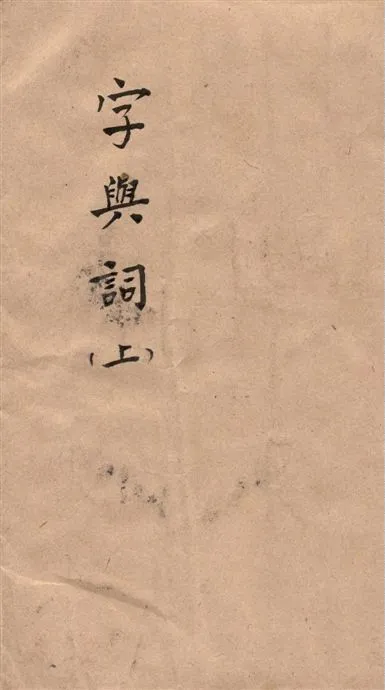 字與詞(上)